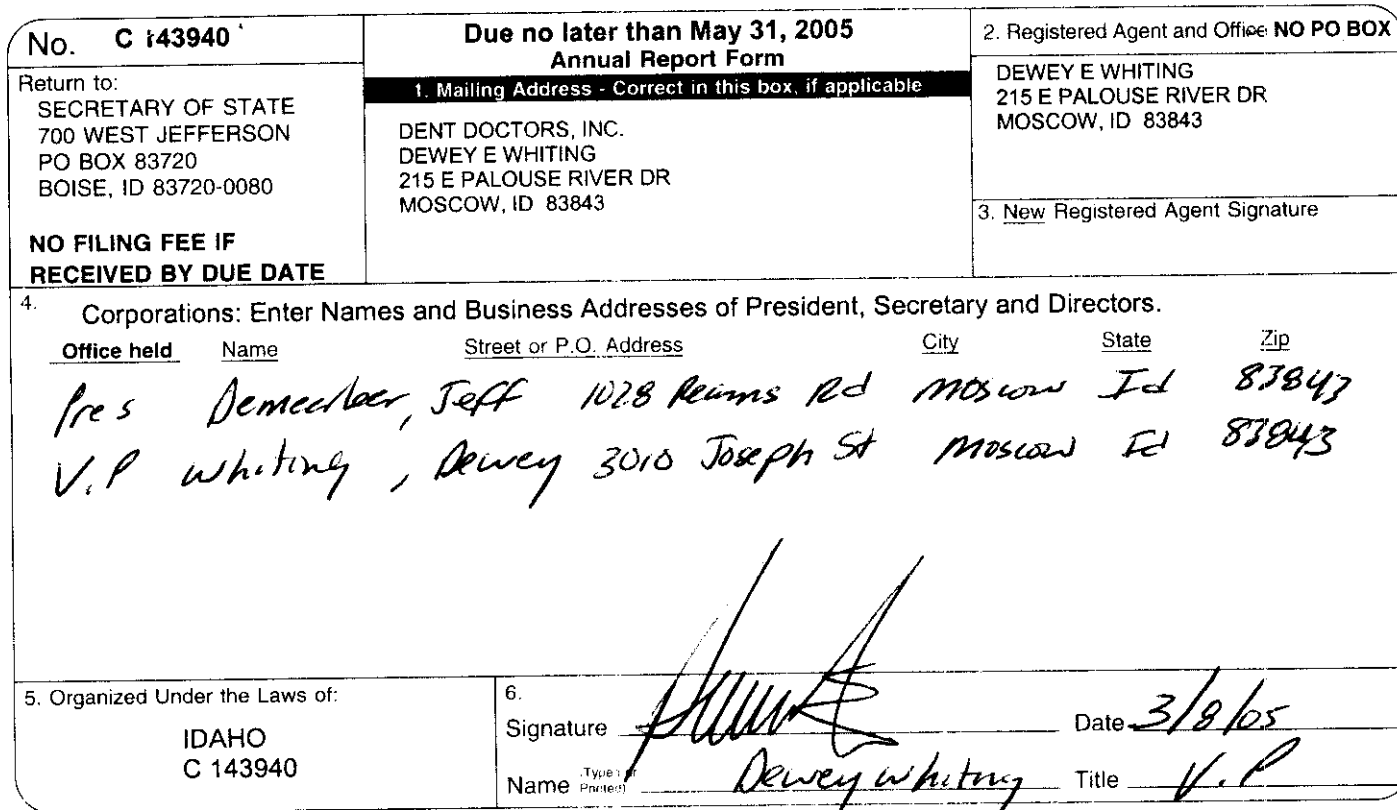 No. C 143940
Return to:
SECRETARY OF STATE
700 WEST JEFFERSON
PO BOX 83720
BOISE, ID 83720-0080
NO FILING FEE IF
RECEIVED BY DUE DATE
Due no later than May 31, 2005
Annual Report Form
1. Mailing Address - Correct in this box, if applicable
DENT DOCTORS, INC.
DEWEY E WHITING
215 E PALOUSE RIVER DR
MOSCOW, ID 83843
2. Registered Agent and Office NO PO BOX
DEWEY E WHITING
215 E PALOUSE RIVER DR
MOSCOW, ID 83843
3. New Registered Agent Signature
4. Corporations: Enter Names and Business Addresses of President, Secretary and Directors.
Office held Name Street or P.O. Address City State Zip
Pres , Jeff 1028 Rd Moscow Id 83843
V.P Whiting, Dewey 3010 Joseph St Moscow Id 83843
5. Organized Under the Laws of:
IDAHO
C 143940
6.
Signature Date 3/8/05
Name (Type or Printed) Dewey Whiting Title V.P